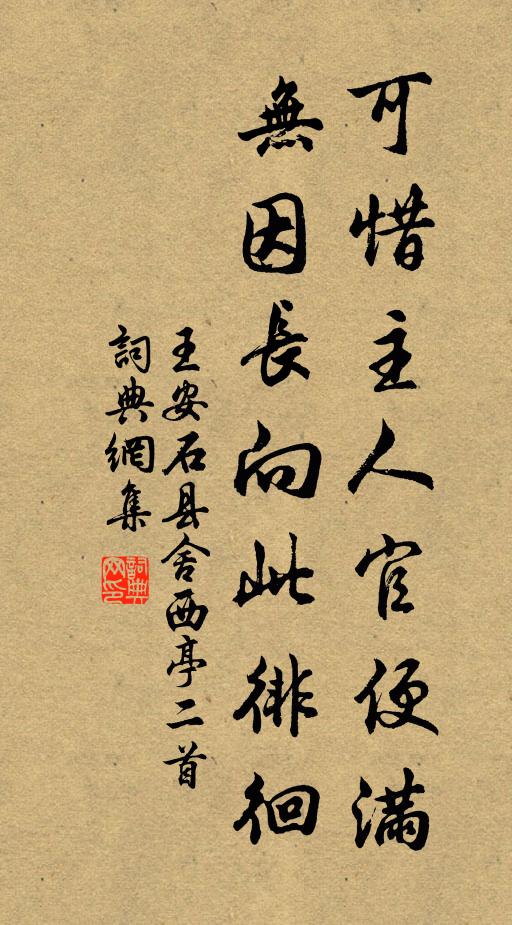 可惜主人官便滿
無因長向此徘徊
王安石县舍西亭二首
詞典網集
詞典
网印